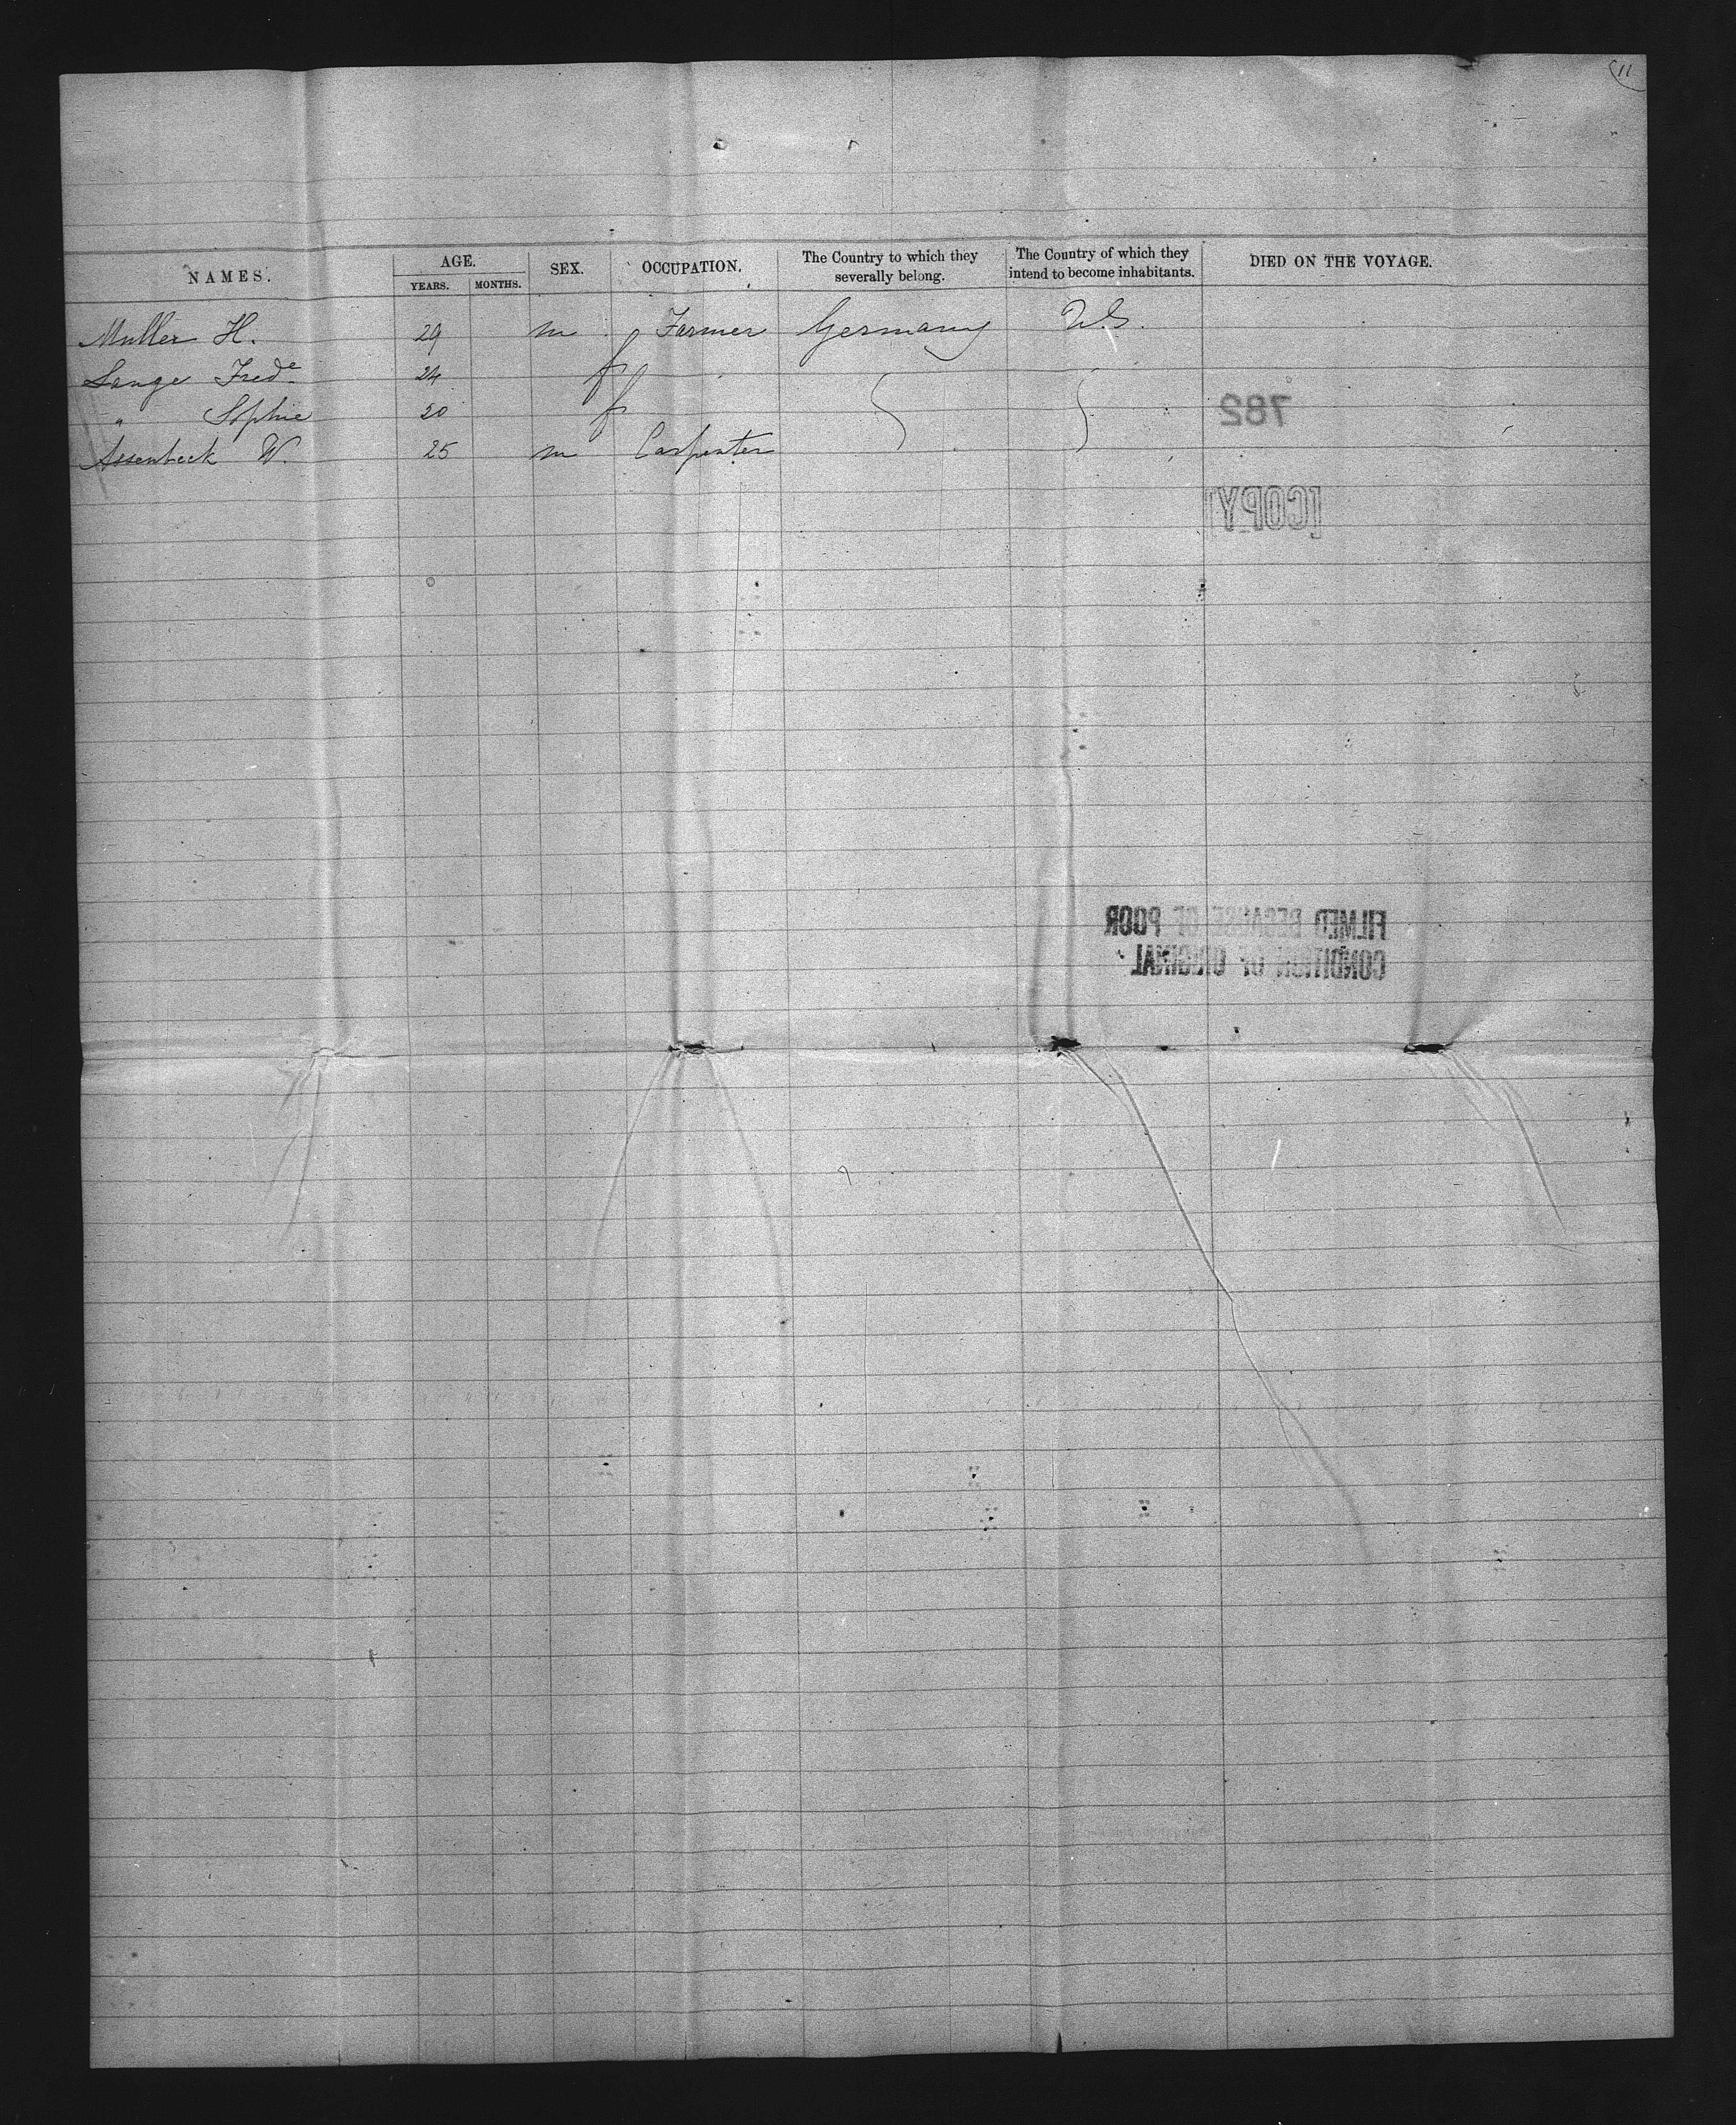 11
NAMES. AGE. YEARS. MONTHS. SEX. OCCUPATION. The Country to which they severally belong. The Country of which they intend to become inhabitants. DIED ON THE VOYAGE.
Muller H. 29 m Farmer Germany U.S.
Lange Frede 24 f
" Sophie 20 f
Assenbeck W. 25 m Carpenter
782
[COPY]
FILMED BECAUSE OF POOR
CONDITION OF ORIGINAL